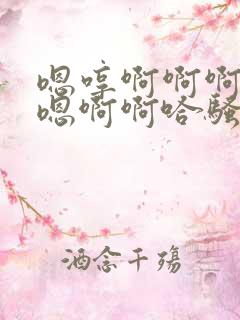 嗯哼啊啊啊
嗯啊啊哈骚
酒念千殇